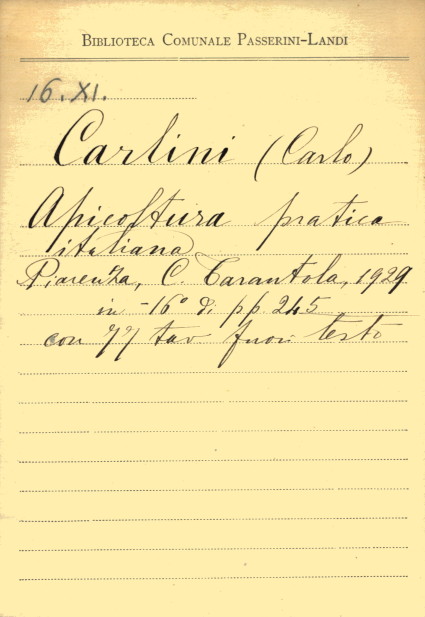 BIBLIOTECA COMUNALE PASSERINI-LANDI
16. XI.
Carlini (Carlo)
Apicoltura pratica
italiana
Piacenza, C. Tarantola, 1929
in -16° di pp. 245
con 77 tav fuori testo